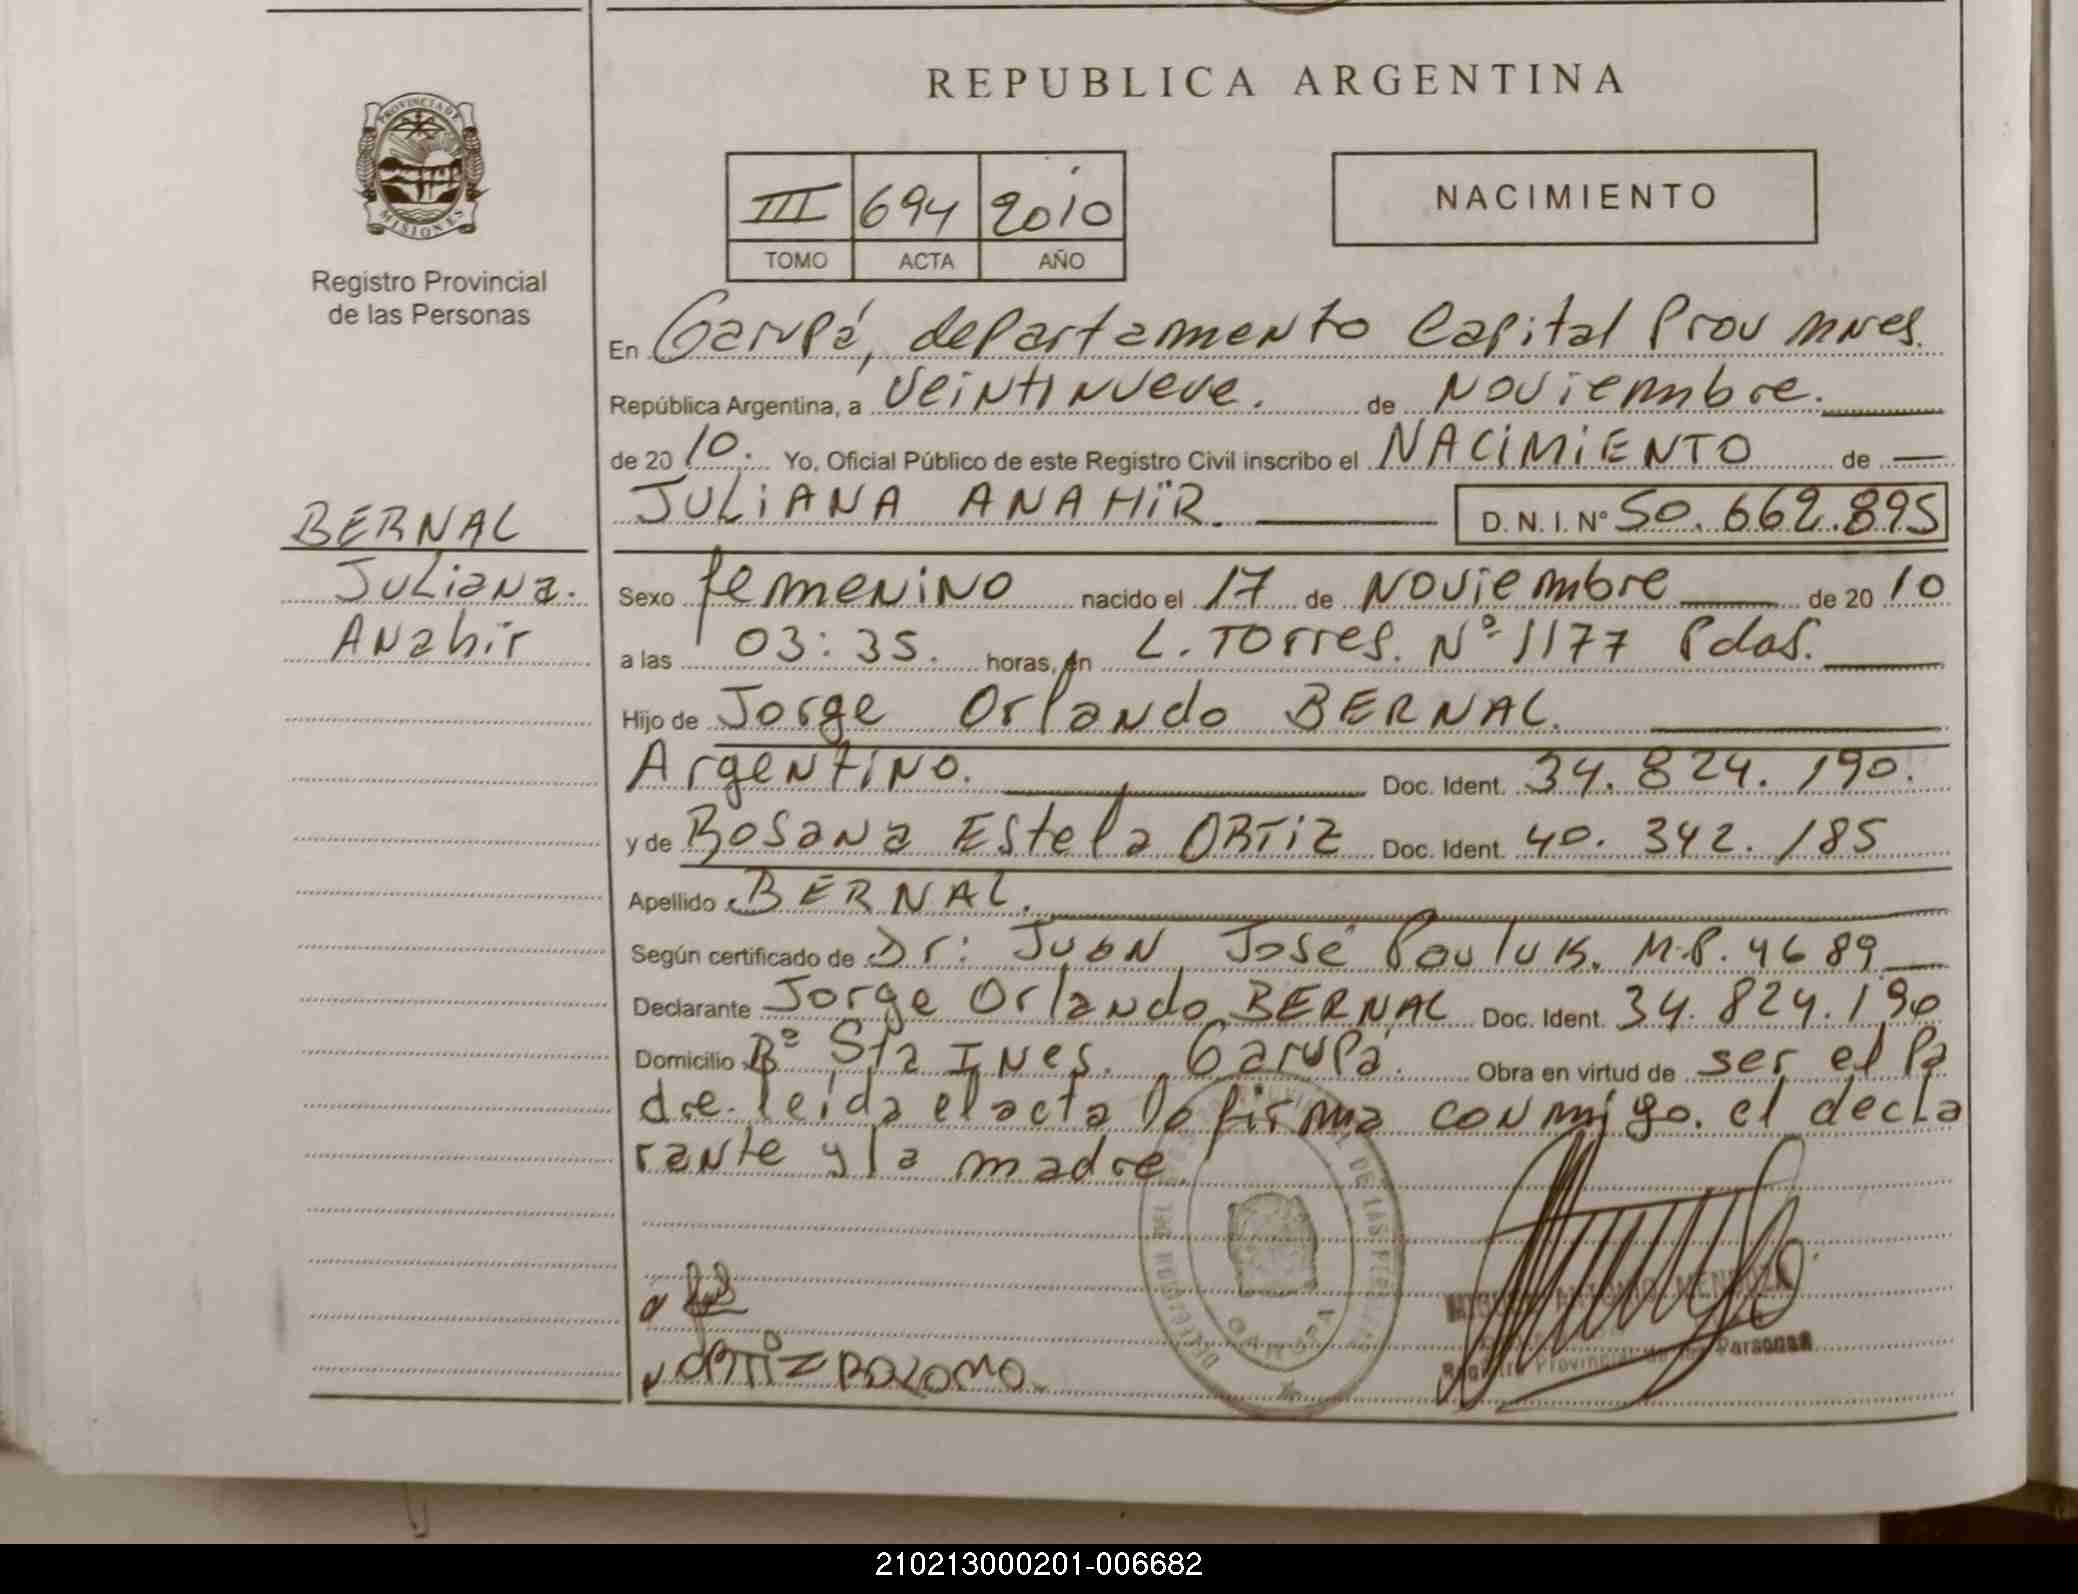 REPUBLICA ARGENTINA
PROVINCIA DE MISIONES
Registro Provincial
de las Personas
III 694 2010
TOMO ACTA AÑO
NACIMIENTO
En Garupá, departamento Capital Prov Mnes.
República Argentina, a veintinueve. de Noviembre.
de 2010. Yo, Oficial Público de este Registro Civil inscribo el NACIMIENTO de
JULIANA ANAHIR. D. N. I. Nº 50.662.895
BERNAL
Juliana.
Anahir
Sexo femenino nacido el 17 de Noviembre de 2010
a las 03:35. horas, en L. Torres. Nº 1177 Pdas.
Hijo de Jorge Orlando BERNAL.
Argentino. Doc. Ident. 34.824.190.
y de Rosana Estela ORTIZ Doc. Ident. 40.342.185
Apellido BERNAL.
Según certificado de Dr: Juan José Pauluk. M.P. 4689
Declarante Jorge Orlando BERNAL Doc. Ident. 34.824.190
Domicilio Bº Sta Ines. Garupá. Obra en virtud de ser el Pa
dre. leída el acta lo firma conmigo. el decla
rante y la madre.
ANTONIO MENDOZA
Registro Provincial de las Personas
ORTIZ
210213000201-006682